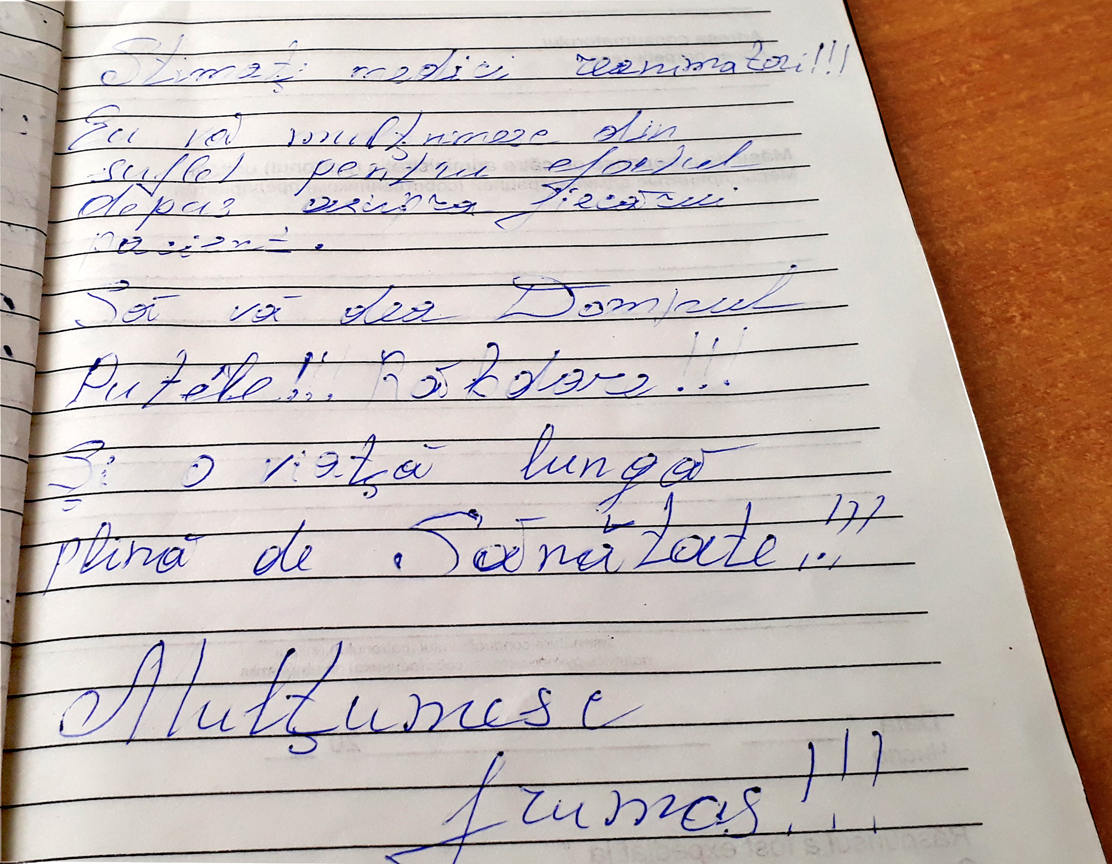 Stimați medici reanimatori!!!
Eu vă mulțumesc din
suflet pentru efortul
depus asupra fiecărui
pacient.
Să vă dea Domnul
Putele!!! Răbdare!!!
Și o viață lungă
plină de Sănătate!!!
Mulțumesc
frumos!!!